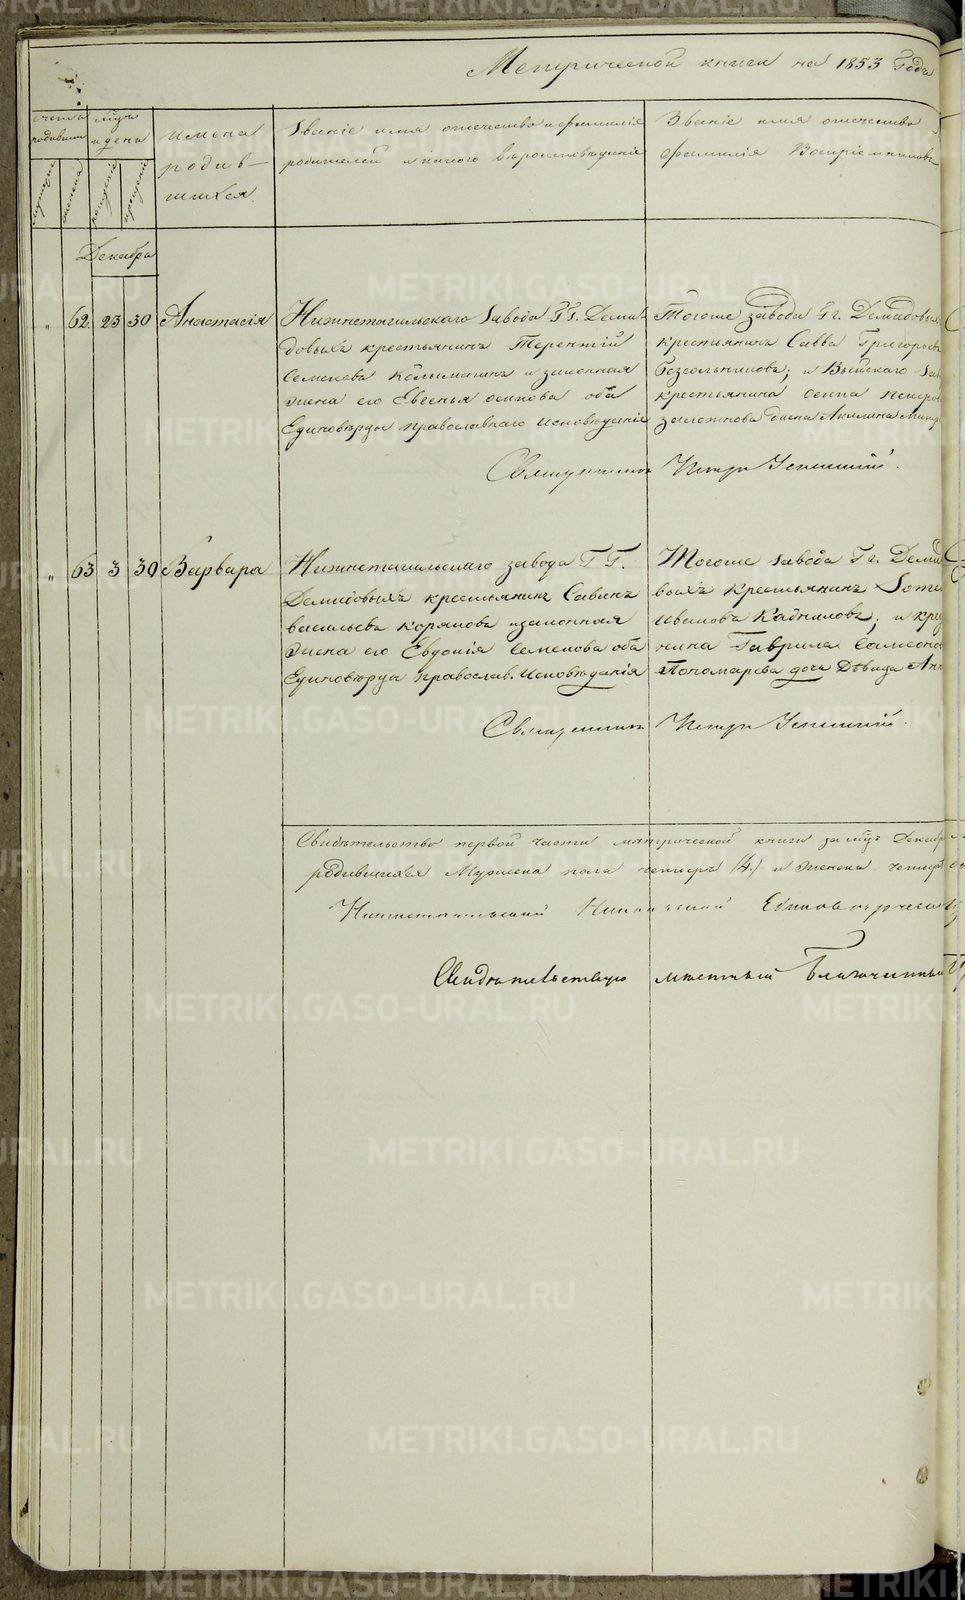 Метрической книги на 1853 Годъ
счетъ родившихся
мцъ и день
Имена родившихся
Званіе имя отчество и фамилія
родителей и какого вѣроисповѣданія
Званіе имя отчество
фамилія Воспріемниковъ
мужеска
женска
рожденія
крещенія
Декабрь
" 62 23 30 Анастасія
Нижнетагильскаго завода Г.Г. Деми
довыхъ крестьянинъ Терентій
Семеновъ Колымагинъ и законная
жена его Евгенья осипова оба
Единовѣрцы православнаго исповѣданія
Тогоже завода Г.г. Демидовыхъ
крестьянинъ Савва Григорьевъ
Безсольниковъ; и Выйскаго зав
крестьянина осипа петров
жена Акилина
Священникъ Петръ Успенскій.
" 63 3 30 Варвара
Нижнетагильскаго завода Г.Г.
Демидовыхъ крестьянинъ Савинъ
васильевъ коряковъ и законная
жена его Евдокія Семенова оба
Единовѣрцы православ. исповѣданія
Тогоже завода Г.г. Демид
выхъ крестьянинъ
ивановъ Кадниковъ; и кре
нина Гаврила
Пономарева дочь Дѣвица Анн
Священникъ Петръ Успенскій.
Свидѣтельство первой части метрической книги за мцъ Декабрь
родившихся Мужеска пола четыре (4.) и Женска четыре
Нижнетагильской Никольской Единовѣрческ
Свидѣтельствую мѣстный Благочинный
METRIKI.GASO-URAL.RU